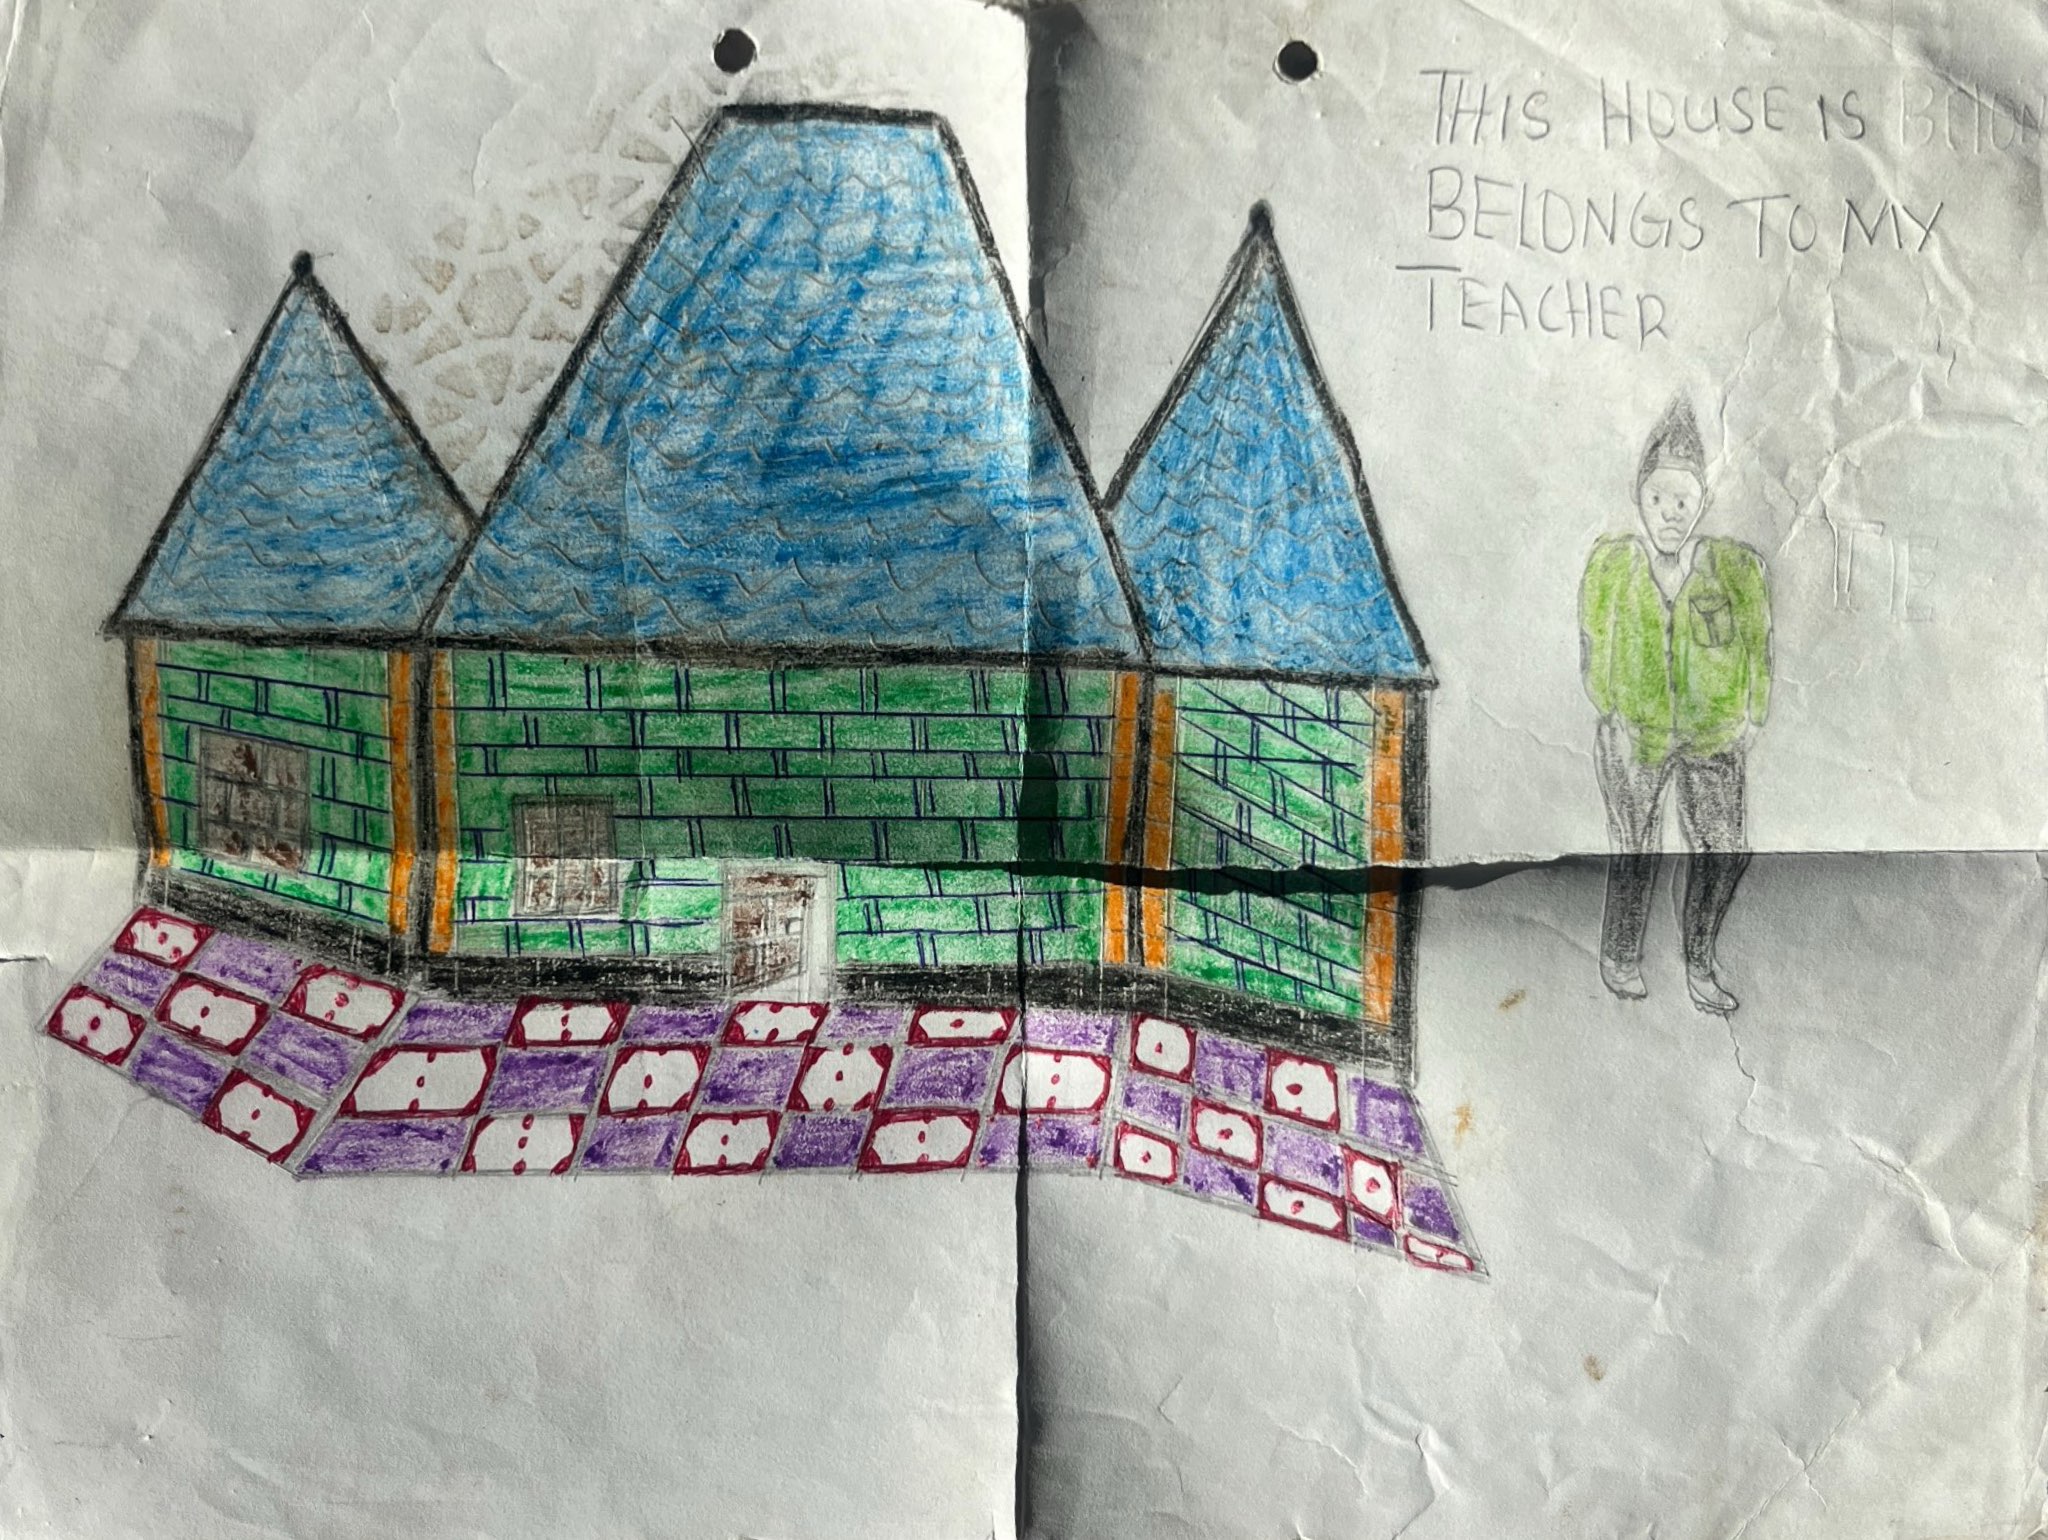 THIS HOUSE IS BELON
BELONGS TO MY
TEACHER